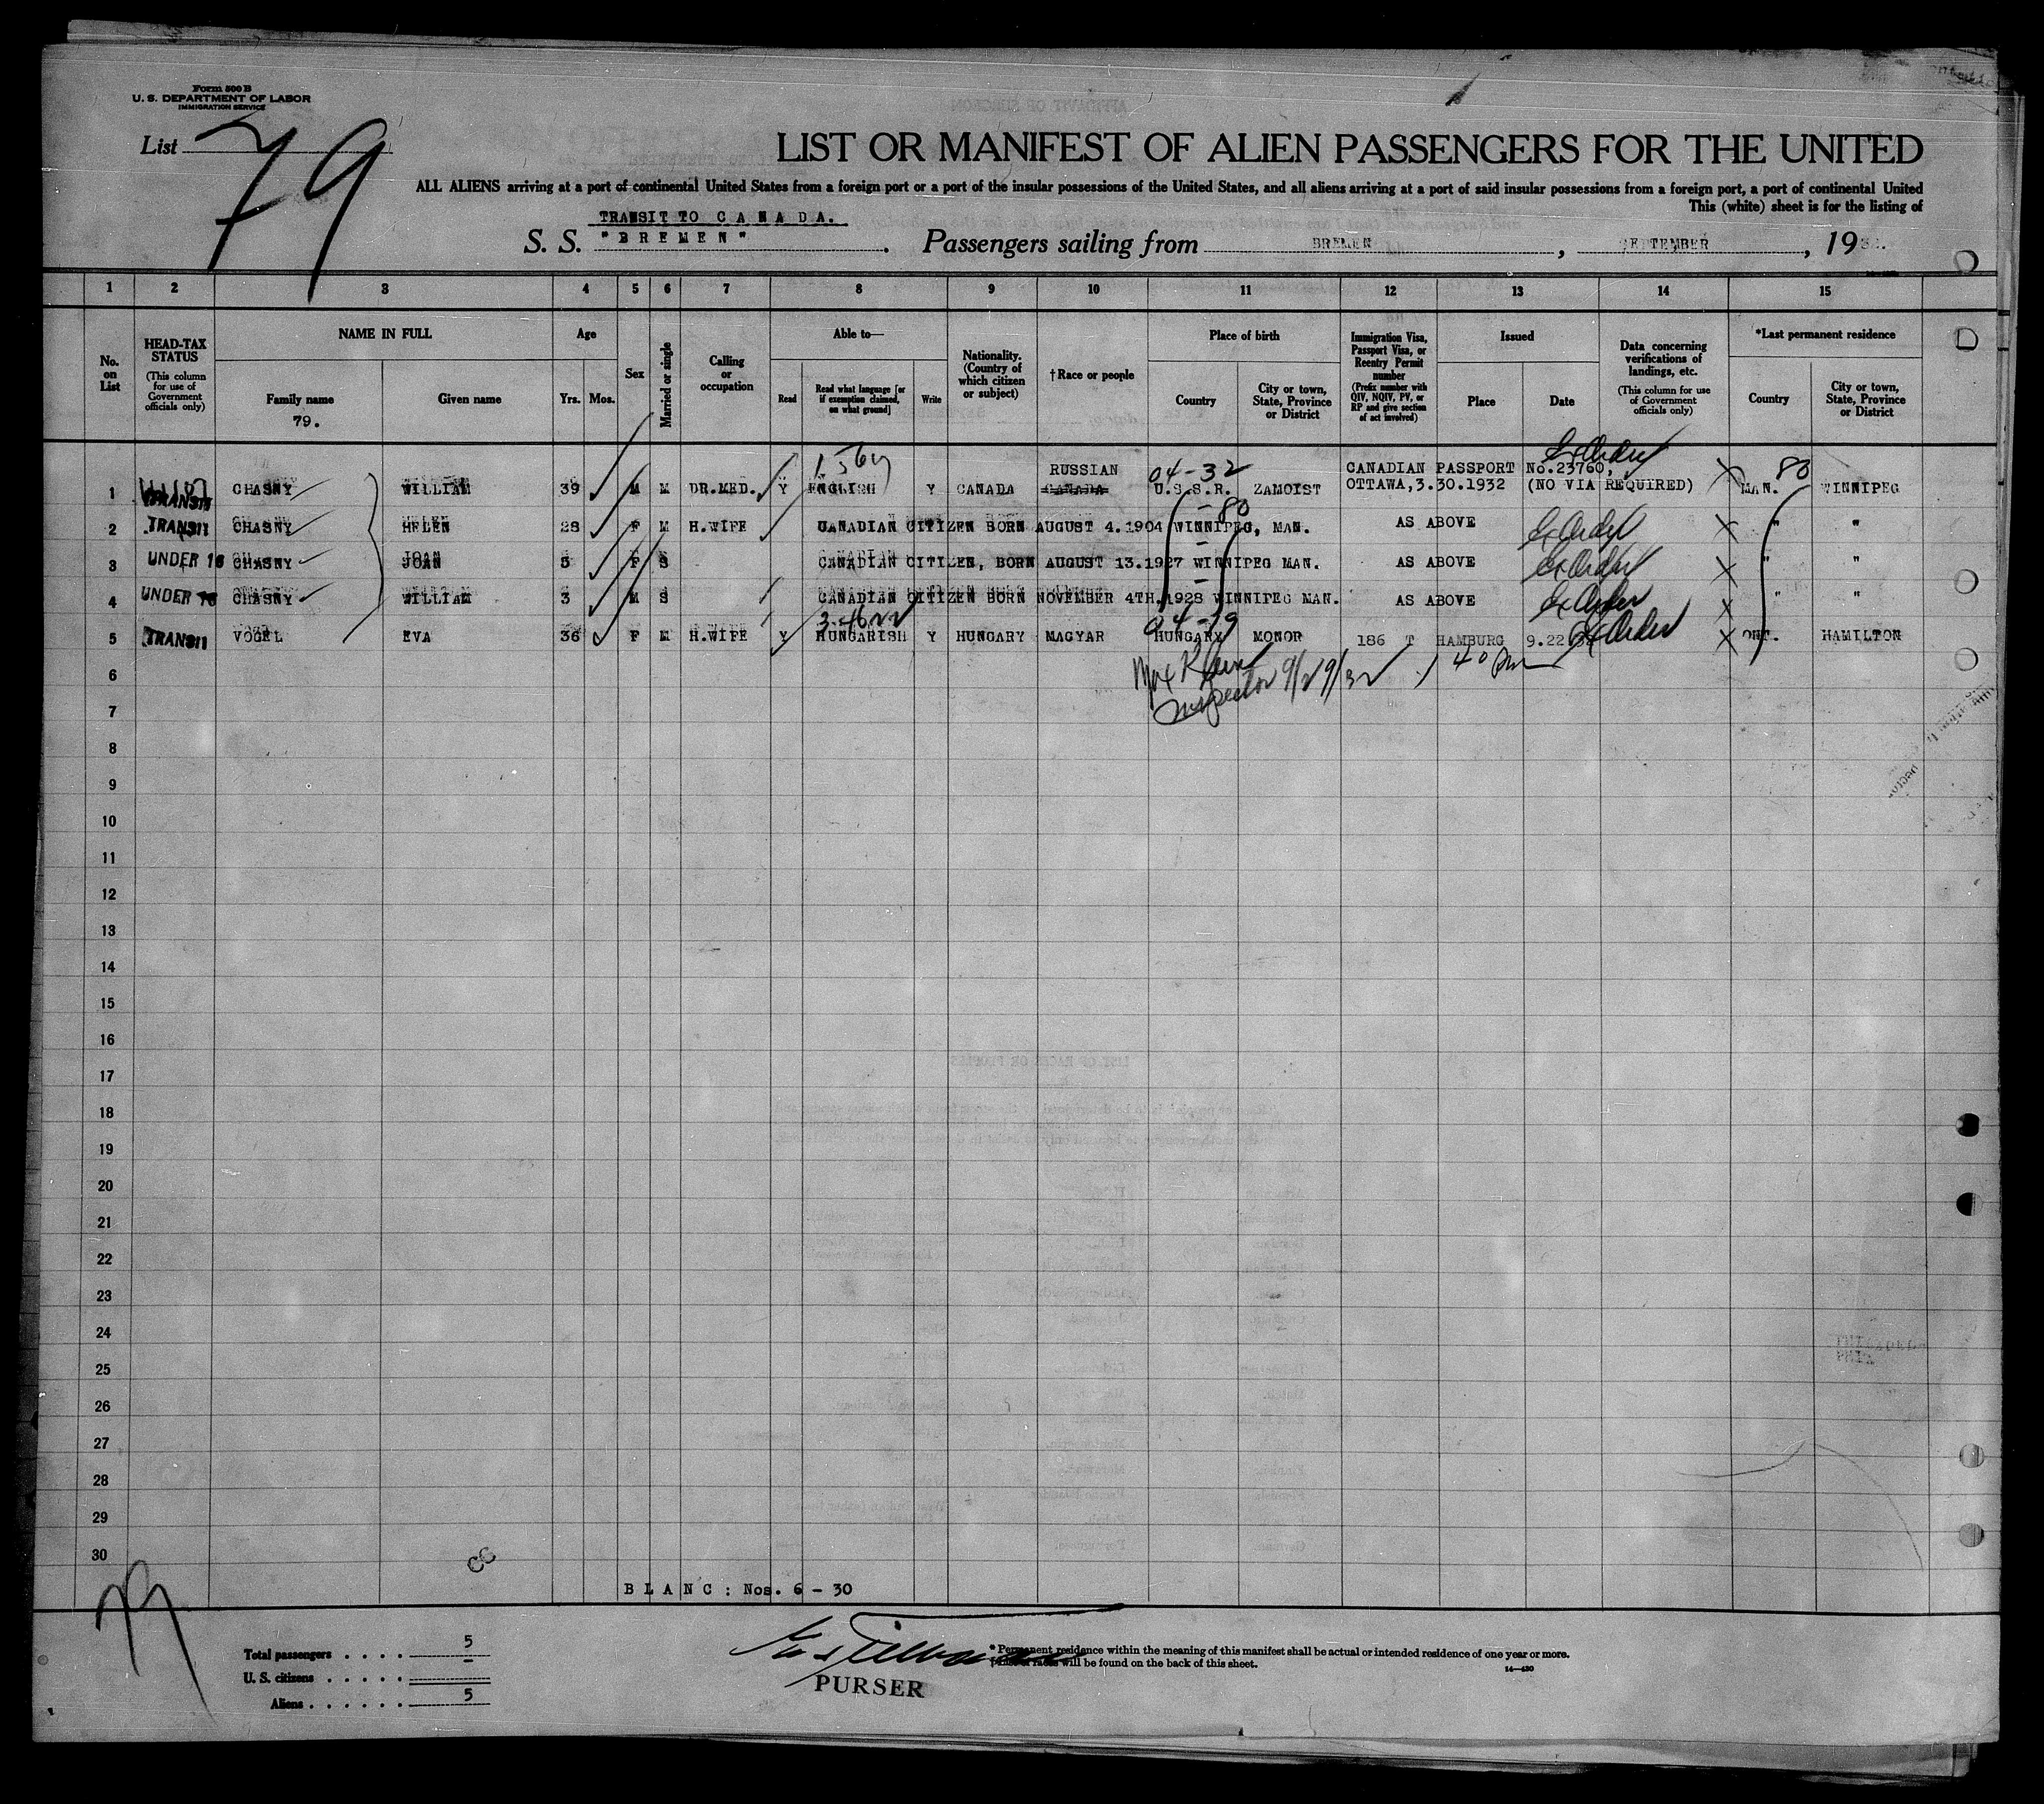 Form 500 B
U. S. DEPARTMENT OF LABOR
IMMIGRATION SERVICE
List 79
LIST OR MANIFEST OF ALIEN PASSENGERS FOR THE UNITED
ALL ALIENS arriving at a port of continental United States from a foreign port or a port of the insular possessions of the United States, and all aliens arriving at a port of said insular possessions from a foreign port, a port of continental United
This (white) sheet is for the listing of
TRANSIT TO CANADA.
S. S. "BREMEN". Passengers sailing from BREMEN, SEPTEMBER, 19
1 2 3 4 5 6 7 8 9 10 11 12 13 14 15
No. on List
HEAD-TAX STATUS
(This column for use of Government officials only)
NAME IN FULL
Family name
79.
Given name
Age
Yrs. Mos.
Sex
Married or single
Calling or occupation
Able to—
Read
Read what language [or if exemption claimed, on what ground]
Write
Nationality. (Country of which citizen or subject)
†Race or people
Place of birth
Country
City or town, State, Province or District
Immigration Visa, Passport Visa, or Reentry Permit number
(Prefix number with QIV, NQIV, PV, or RP and give section of act involved)
Issued
Place
Date
Data concerning verifications of landings, etc.
(This column for use of Government officials only)
*Last permanent residence
Country
City or town, State, Province or District
RUSSIAN 04-32 CANADIAN PASSPORT No.23760, 80
1 TRANSIT CHASNY WILLIAM 39 M M DR.MED. Y ENGLISH Y CANADA CANADA U.S.S.R. ZAMOIST OTTAWA,3.30.1932 (NO VIA REQUIRED) MAN. WINNIPEG
- 80
2 TRANSIT CHASNY HELEN 28 F M H.WIFE CANADIAN CITIZEN BORN AUGUST 4.1904 WINNIPEG, MAN. AS ABOVE " "
3 UNDER 16 CHASNY JOAN 5 F S CANADIAN CITIZEN, BORN AUGUST 13.1927 WINNIPEG MAN. AS ABOVE " "
4 UNDER 16 CHASNY WILLIAM 3 M S CANADIAN CITIZEN BORN NOVEMBER 4TH.1928 WINNIPEG MAN. AS ABOVE " "
04-19
5 TRANSIT VOGEL EVA 36 F M H.WIFE Y HUNGARISH Y HUNGARY MAGYAR HUNGARY MONOR 186 T HAMBURG 9.22 ONT. HAMILTON
Max
Inspector 9/29/32 1 40 pm
6
7
8
9
10
11
12
13
14
15
16
17
18
19
20
21
22
23
24
25
26
27
28
29
30
BLANC: Nos. 6 - 30
79
Total passengers . . . . 5
U. S. citizens . . . . . -
Aliens . . . . . . 5
PURSER
* Permanent residence within the meaning of this manifest shall be actual or intended residence of one year or more.
† List of races will be found on the back of this sheet.
14—430